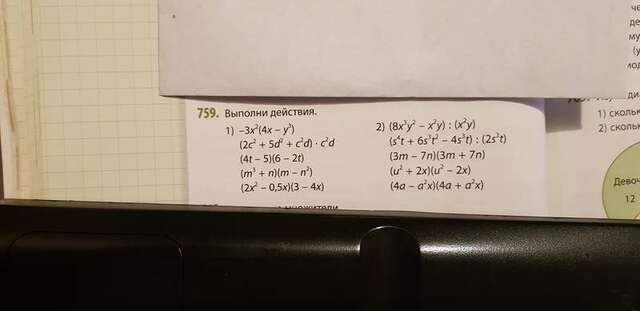 759. Выполни действия.
1) –3x²(4x – y³)
(2c² + 5d² + c²d) · c²d
(4t – 5)(6 – 2t)
(m³ + n)(m – n²)
(2x² – 0,5x)(3 – 4x)
2) (8x³y² – x²y) : (x²y)
(s⁴t + 6s³t² – 4s³t) : (2s²t)
(3m – 7n)(3m + 7n)
(u² + 2x)(u² – 2x)
(4a – a²x)(4a + a²x)
множители
1) сколь
2) сколь
Девоч
12